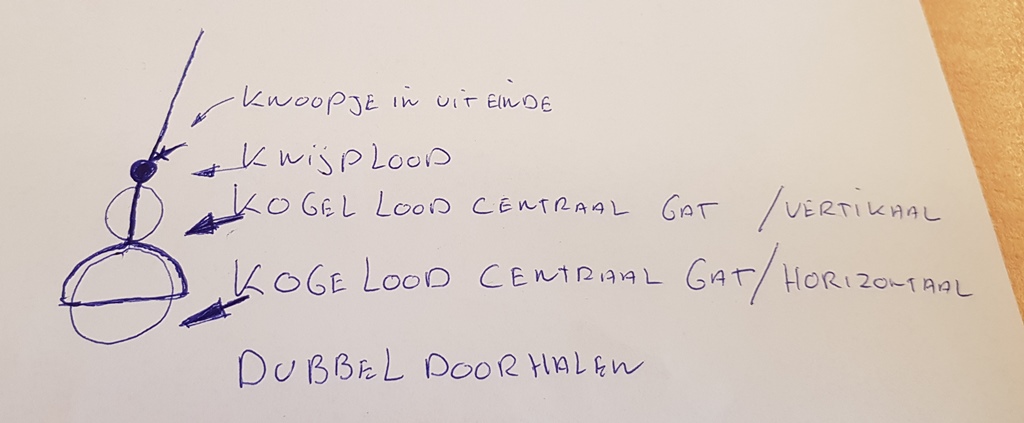 KNOOPJE IN UIT EINDE
KNIJPLOOD
KOGEL LOOD CENTRAAL GAT /VERTIKAAL
KOGELOOD CENTRAAL GAT/HORIZONTAAL
DUBBEL DOORHALEN